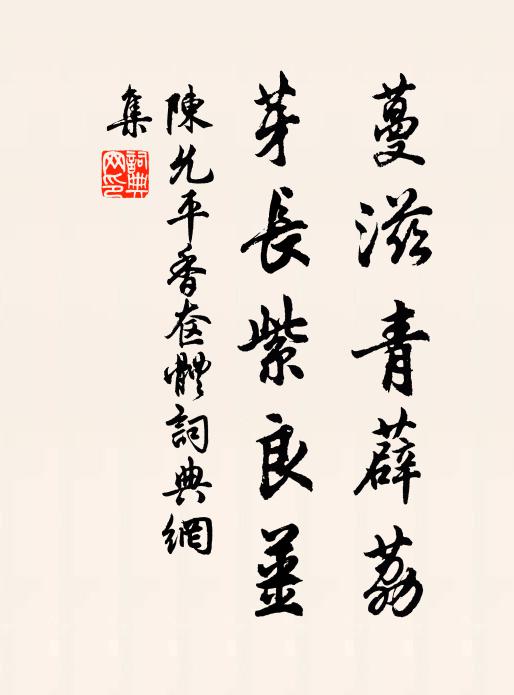 蔓滋青薜荔
芽長紫良薑
陳允平香奩體詞典網
集
詞典
网印